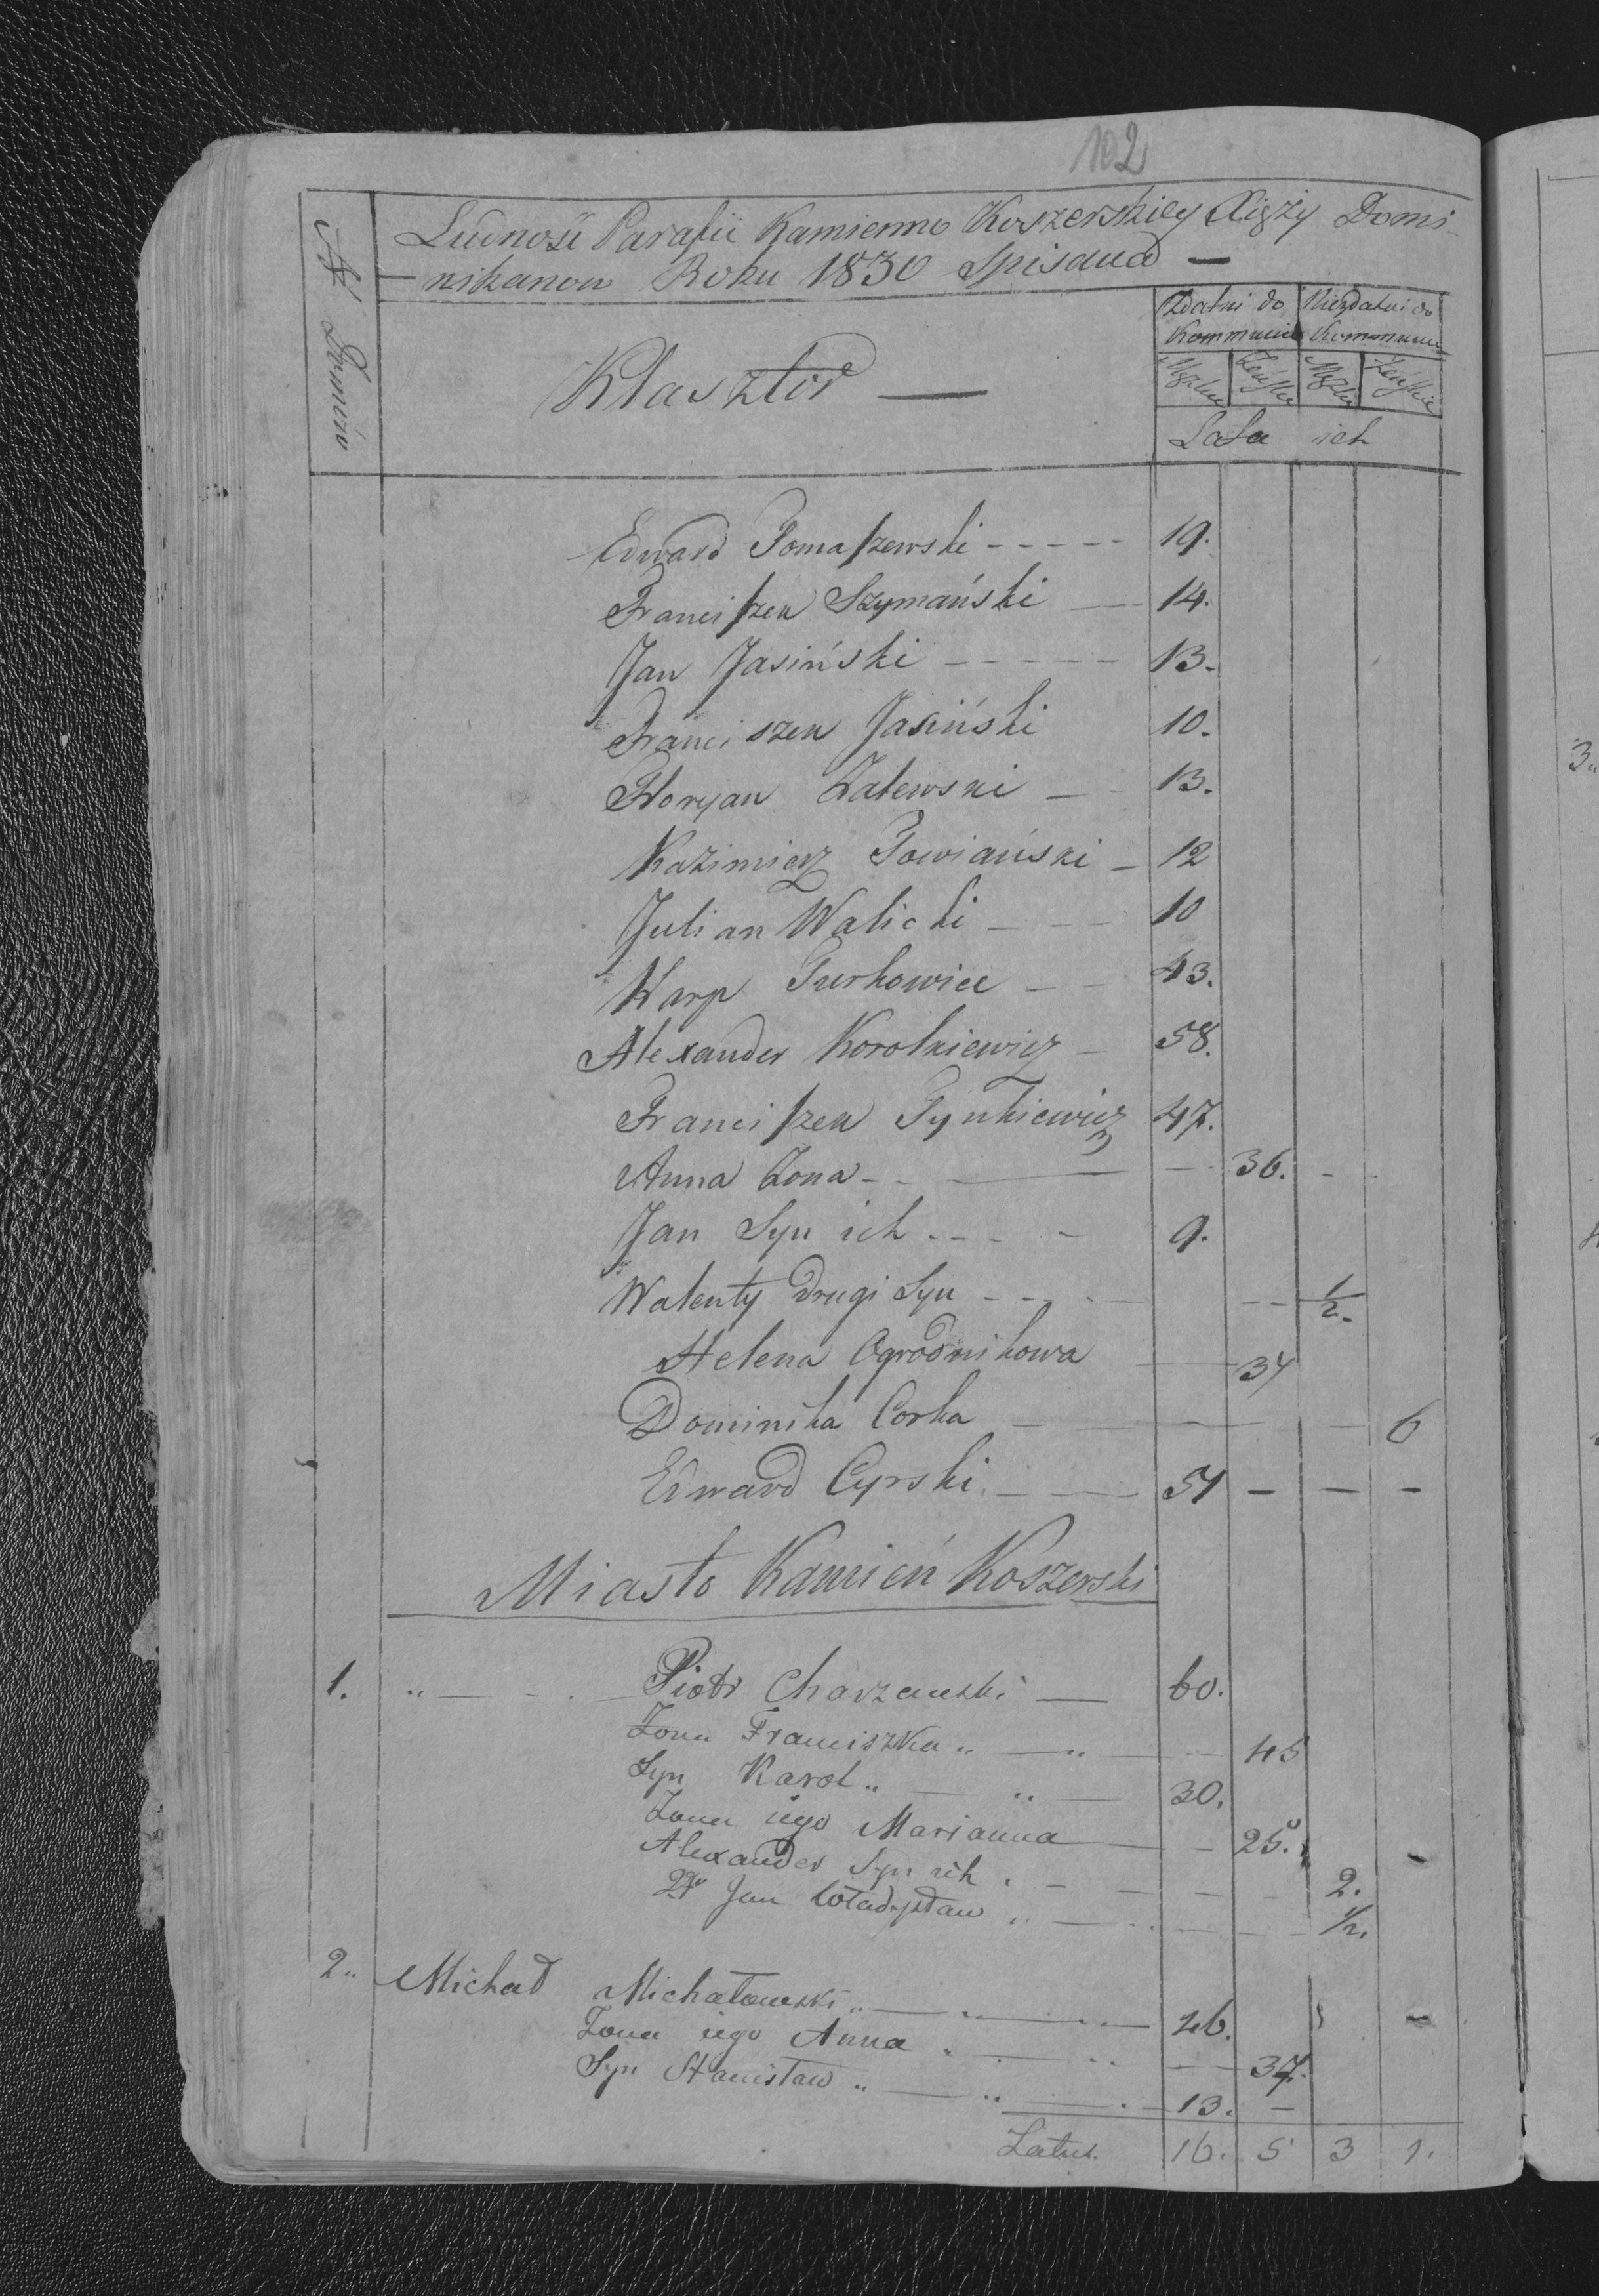 102
Ludność Parafii Kamienno Koszerskiey Xięży Domi-
nikanow Roku 1830 Spisana —
N Domów
Klasztor —
Zdatni do Kommunii
Niezdatni do Kommunii
Męzkie Żeńskie Męzkie Żeńskie
Lata ich
Edward Tomaszewski - - - - - 19.
Franciszek Szymański — 14.
Jan Jasiński - - - - - 13.
Franciszek Jasiński 10.
Floryan Zalewski — 13.
Kazimierz Towiański - 12
Julian Walicki - - - 10
Karp Turkowicz - - 43.
Alexander Korotkiewicz - 58.
Franciszek Tynkiewicz 47.
Anna Żona - - — - 36. -
Jan Syn ich - - - - 9.
Walenty drugi Syn - - - - 1/2.
Helena Ogrodnikowa — 34
Dominika Corka — 6
Edward Cyrski - — 54 - - -
Miasto Kamień Koszerski
1. " — Piotr Charzewski — 60.
Żona Franciszka " — " — 45
Syn Karol " — " — 30.
Żona iego Marianna — - 25.
Alexander Syn ich . - - - 2.
2gi Jan Władysław " — 1/2.
2" Michał Michałowski " — " — 46.
Żona iego Anna " — " — 37.
Syn Stanisław " — " — 13. -
Latus. 16. 5 3 1.